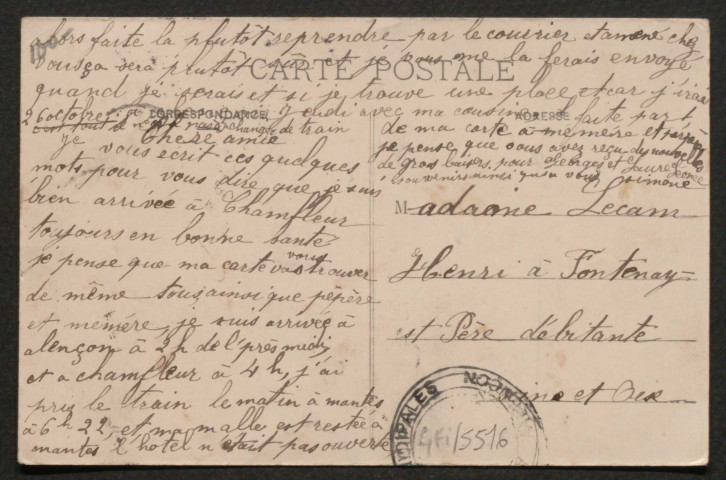 CARTE POSTALE
CORRESPONDANCE
ADRESSE
26 octobre
changer de train
Chère amie
je vous écrit ces quelques
mots pour vous dire que je suis
bien arrivée à Chamfleur
toujours en bonne santé
je pense que ma carte vous trouver
de même tous ainsi que pépère
et mémère, je suis arrivée à
alençon à 2h de l'près midi,
et a chamfleur à 4h, j'ai
pris le train le matin à mantes
à 6h 22, et ma malle est restée à
mantes l'hotel n'était pas ouverte
alors faite la plutôt reprendre par le courrier et amené chez
vous ça sera plutôt sûr et je vous me la ferais envoyé
quand je serais et si je trouve une place et car j'irai
jeudi avec ma cousine faite part
de ma carte à mémère et
je pense que vous avez reçu des nouvelles
de gros baisers pour Georges et
souvenirs ainsi qu'a vous simone
Madame Lecam
Henri à Fontenay-
st Père débitante
ine et Oise
4Fi/5516